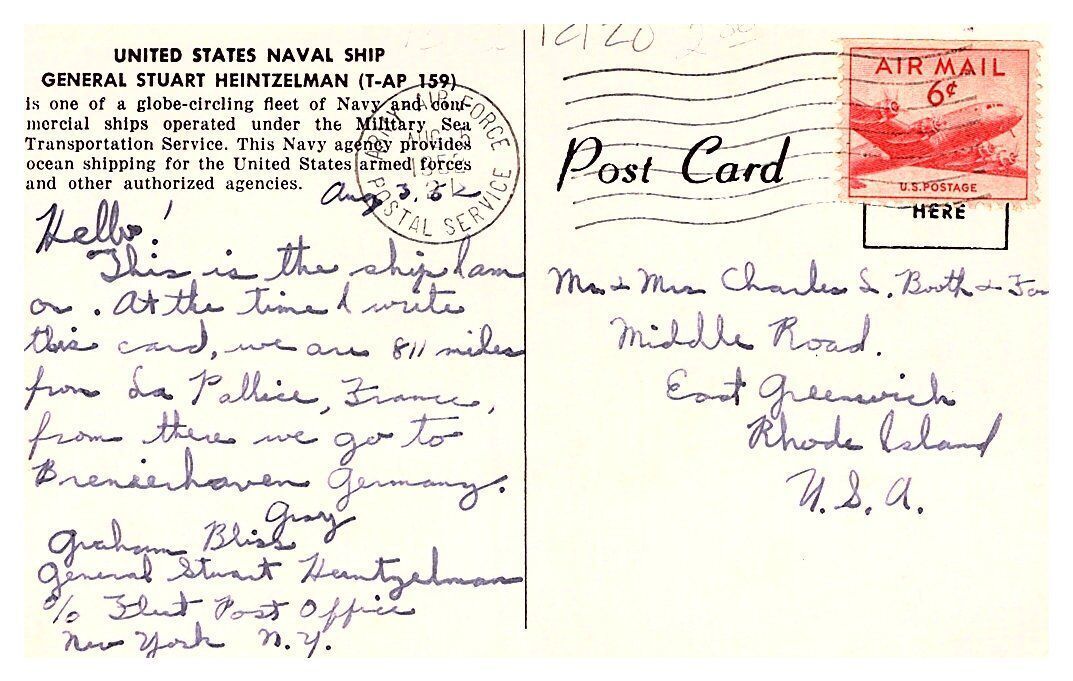 UNITED STATES NAVAL SHIP
GENERAL STUART HEINTZELMAN (T-AP 159)
is one of a globe-circling fleet of Navy and com-
mercial ships operated under the Military Sea
Transportation Service. This Navy agency provides
ocean shipping for the United States armed forces
and other authorized agencies.
Aug 3. 52
Hello!
This is the ship I am
on. At the time I write
this card, we are 811 miles
from La Pallice, France,
from there we go to
Bremerhaven Germany.
Gray
Graham Bliss
General Stuart Heintzelman
c/o Fleet Post Office
New York N.Y.
ARMY AIR FORCE
AUG 5
POSTAL SERVICE
AIR MAIL
6¢
U.S. POSTAGE
HERE
Post Card
Mr & Mrs Charles S. Booth & Fam
Middle Road.
East Greenwich
Rhode Island
U.S.A.